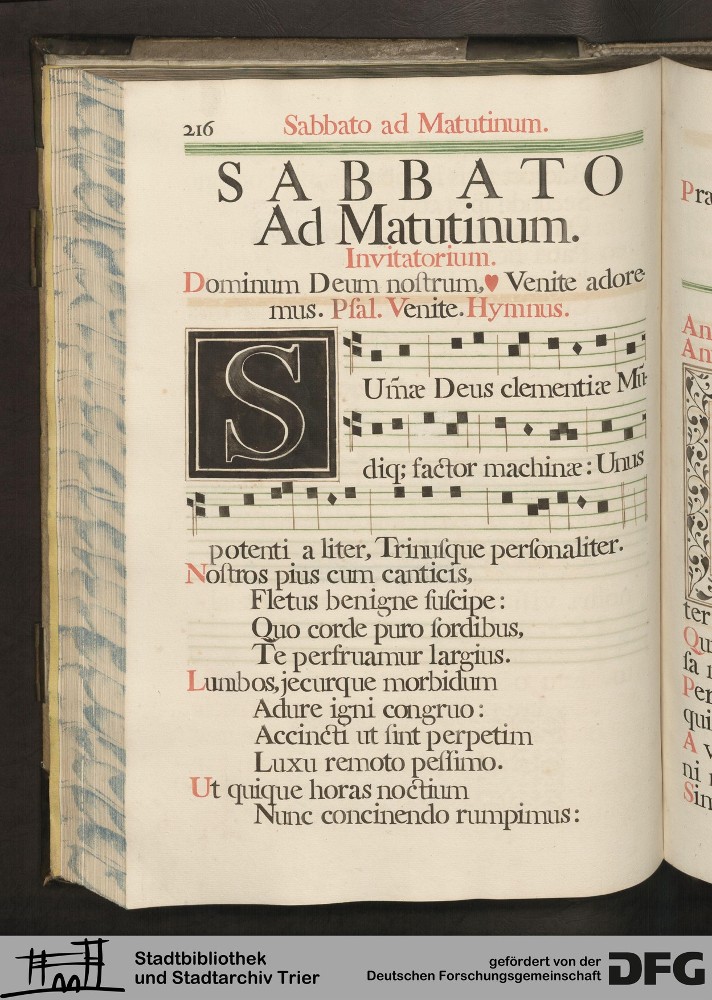 216 Sabbato ad Matutinum.
SABBATO
Ad Matutinum.
Invitatorium.
Dominum Deum noſtrum,♥ Venite adore-
mus. Pſal. Venite. Hymnus.
SUm̄æ Deus clementiæ Mū-
diq; factor machinæ: Unus
potenti aliter, Trinuſque perſonaliter.
Noſtros pius cum canticis,
Fletus benigne ſuſcipe:
Quo corde puro ſordibus,
Te perfruamur largius.
Lumbos, jecurque morbidum
Adure igni congruo:
Accincti ut ſint perpetim
Luxu remoto peſſimo.
Ut quique horas noctium
Nunc concinendo rumpimus:
Pra
An
Am
ter
Qu
ſa
Per
qui
A v
ni
Sim
Stadtbibliothek
und Stadtarchiv Trier
gefördert von der
Deutschen Forschungsgemeinschaft
DFG